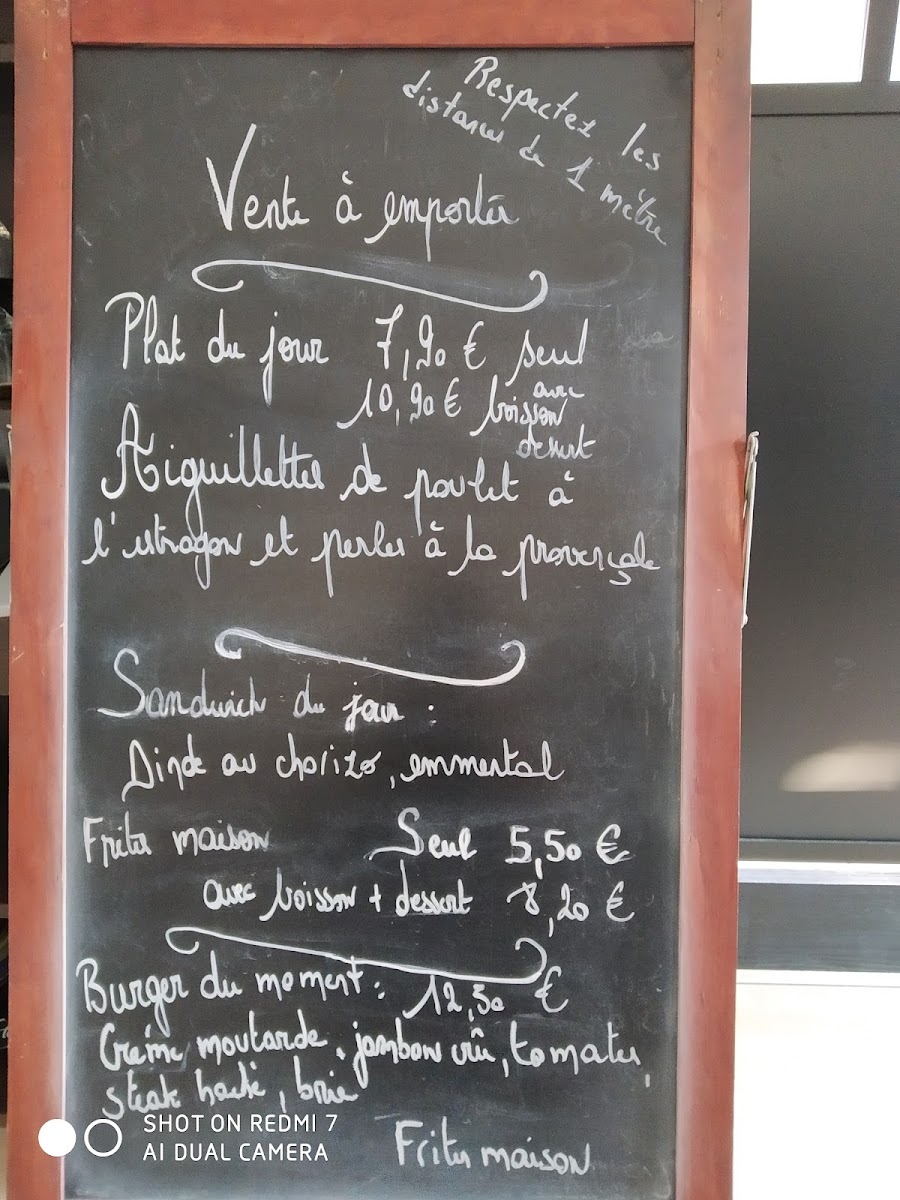 Respectez les
distances de 1 mètre
Vente à emporter
Plat du jour 7,90 € seul
10,90 € avec
boisson
dessert
Aiguillettes de poulet à
l'estragon et perles à la provençale
Sandwich du jour :
Dinde au chorizo, emmental
Frites maison Seul 5,50 €
avec boisson + dessert 8,20 €
Burger du moment : 12,50 €
Crème moutarde, jambon crû, tomates,
steak haché, brie
Frites maison
SHOT ON REDMI 7
AI DUAL CAMERA